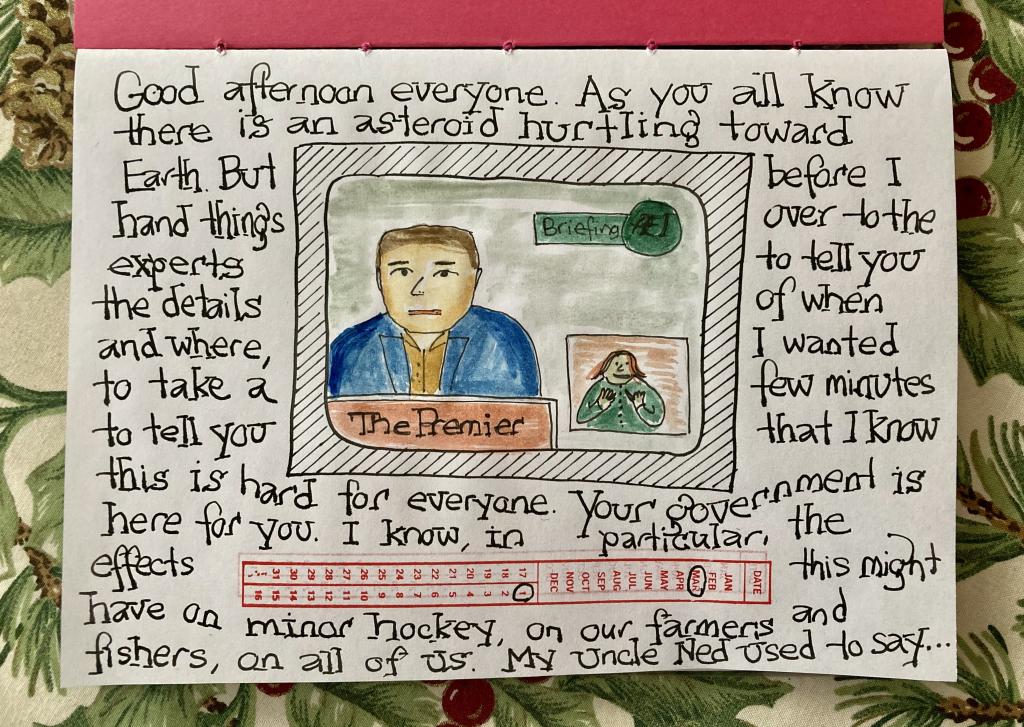 Good afternoon everyone. As you all know
there is an asteroid hurtling toward
Earth. But before I
hand things over to the
experts to tell you
the details of when
and where, I wanted
to take a few minutes
to tell you that I know
this is hard for everyone. Your government is
here for you. I know, in particular, the
effects this might
have on minor hockey, on our farmers and
fishers, on all of us. My Uncle Ned used to say...
Briefing PEI
The Premier
DATE JAN FEB MAR APR MAY JUN JUL AUG SEP OCT NOV DEC
1 2 3 4 5 6 7 8 9 10 11 12 13 14 15 16
17 18 19 20 21 22 23 24 25 26 27 28 29 30 31